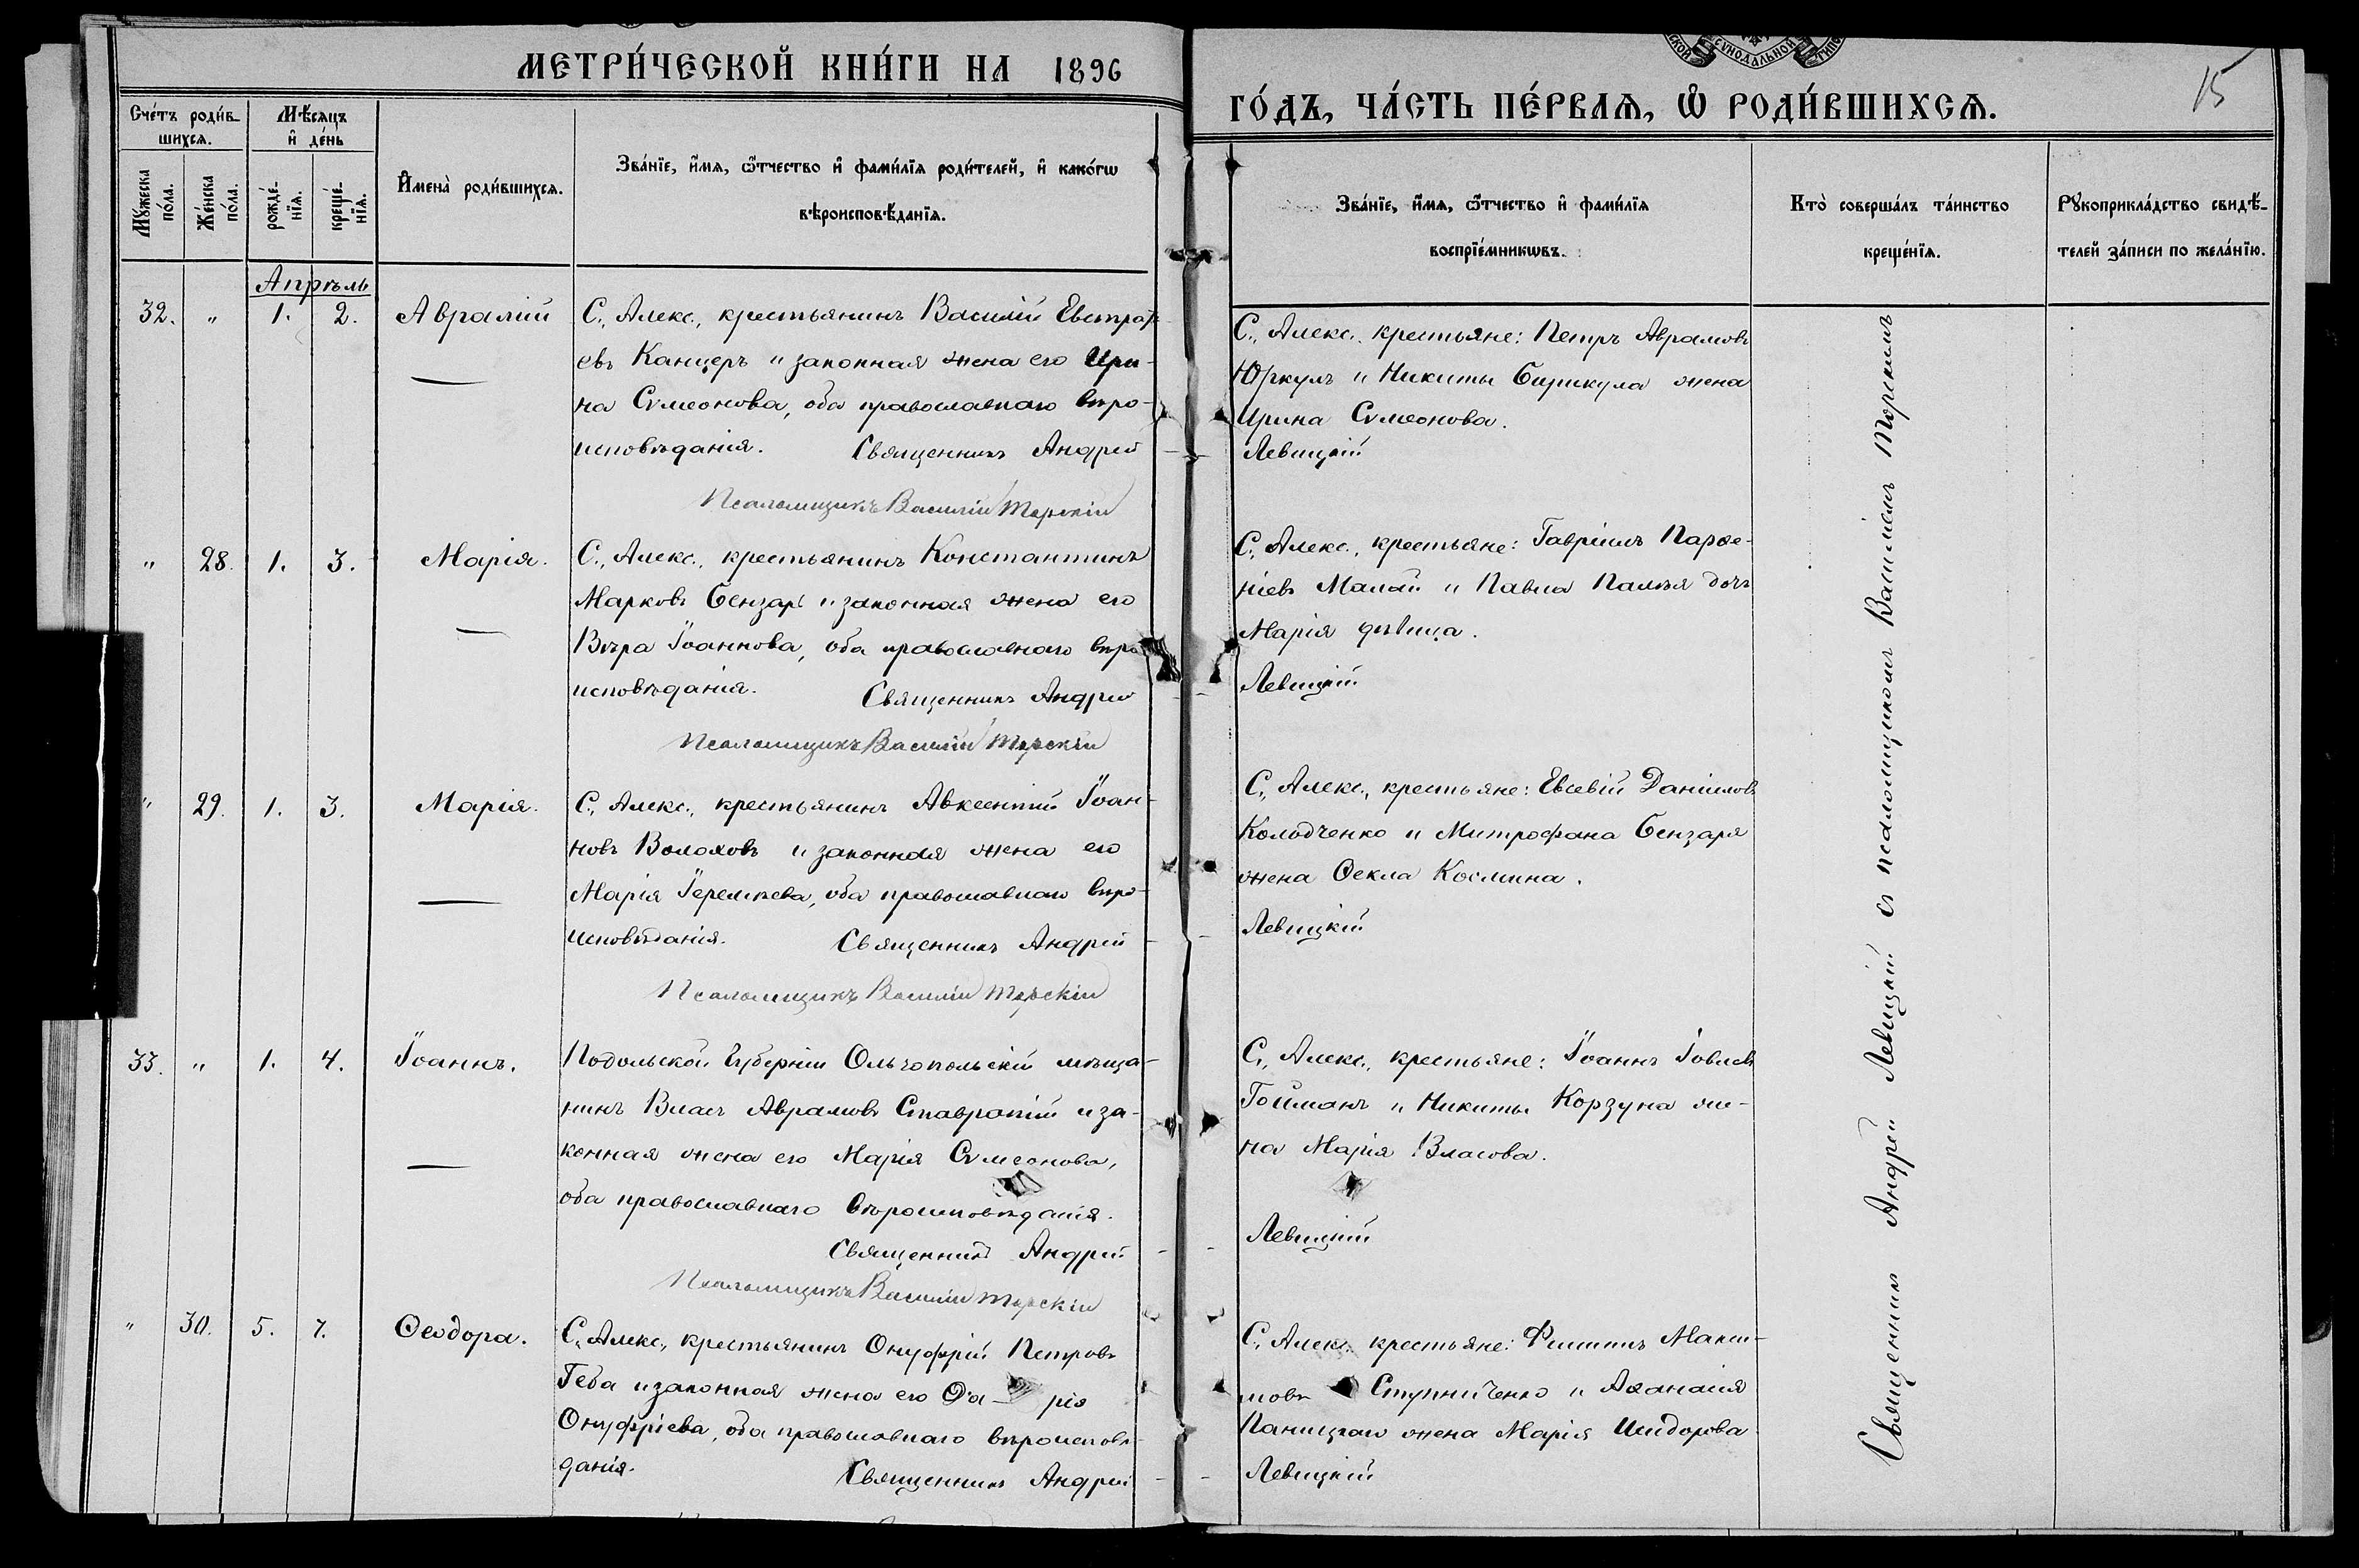 МЕТРИ́ЧЕСКОЙ КНИ́ГИ НА 1896
ГО́ДЪ, ЧА́СТЬ ПЕ́РВАѦ, Ѡ҆ РОДИ́ВШИХСѦ.
15
Сче́тъ роди́в-
шихсѧ.
Мꙋ́жеска по́ла.
Же́нска по́ла.
Мѣ́сяцъ
и҆ де́нь
рожде́-
нїѧ.
креще́-
нїѧ.
И҆мена̀ роди́вшихсѧ.
Зва́нїе, и҆́мѧ, ѻ҆́тчество и҆ фами́лїѧ роди́телей, и҆ како́гѡ
вѣроисповѣ́данїѧ.
Зва́нїе, и҆́мѧ, ѻ҆́тчество и҆ фами́лїѧ
воспрїе́мникѡвъ.
Кто̀ соверша́лъ та́инство
креще́нїѧ.
Рꙋкоприкла́дство свидѣ́-
телей за́писи по жела́нїю.
Апрѣль
32. " 1. 2. Аврамій
С., Алекс., крестьянинъ Василій Евстраф-
евъ Канцеръ и законная жена его Ири-
на Сѵмеонова, оба православнаго вѣро-
исповѣданія. Священникъ Андрей
Псаломщикъ Василій Торскій
С., Алекс. крестьяне: Петръ Аврамовъ
Юркулъ и Никиты Бирикула жена
Ирина Сѵмеонова.
Левицкій
" 28. 1. 3. Марія.
С., Алекс., крестьянинъ Константинъ
Марковъ Бензарь и законная жена его
Вѣра Іоаннова, оба православнаго вѣро
исповѣданія. Священникъ Андрей
Псаломщикъ Василій Торскій
С., Алекс., крестьяне: Гавріилъ Парѳе-
ніевъ Малай и Павла дочь
Марія дѣвица.
Левицкій
" 29. 1. 3. Марія.
С., Алекс., крестьянинъ Авксентій Іоан-
новъ Волоховъ и законная жена его
Марія Іереміева, оба православнаго вѣро-
исповѣданія. Священникъ Андрей
Псаломщикъ Василій Торскій
С., Алекс., крестьяне: Евсевій Даніиловъ
Колодченко и Митрофана Бензаря
жена Ѳекла Космина.
Левицкій
33. " 1. 4. Іоаннъ.
Подольской Губерніи Ольгопольскій мѣща-
нинъ Власъ Аврамовъ Ставратій и за-
конная жена его Марія Сѵмеонова,
оба православнаго вѣроисповѣданія.
Священникъ Андрей
Псаломщикъ Василій Торскій
С., Алекс., крестьяне: Іоаннъ Іовлевъ
Гойманъ и Никиты Корзуна же-
на Марія Власова.
Левицкій
" 30. 5. 7. Ѳеодора.
С., Алекс., крестьянинъ Онуфрій Петровъ
Геба и законная жена его Да- рія
Онуфріева, оба православнаго вѣроисповѣ-
данія. Священникъ Андрей
С., Алекс. крестьяне: Филиппъ Макси-
мовъ Ступниченко и Аѳанасія
Паницкаго жена Марія Исидорова
Левицкій
Священникъ Андрей Левицкій съ псаломщикомъ Василіемъ Торскимъ